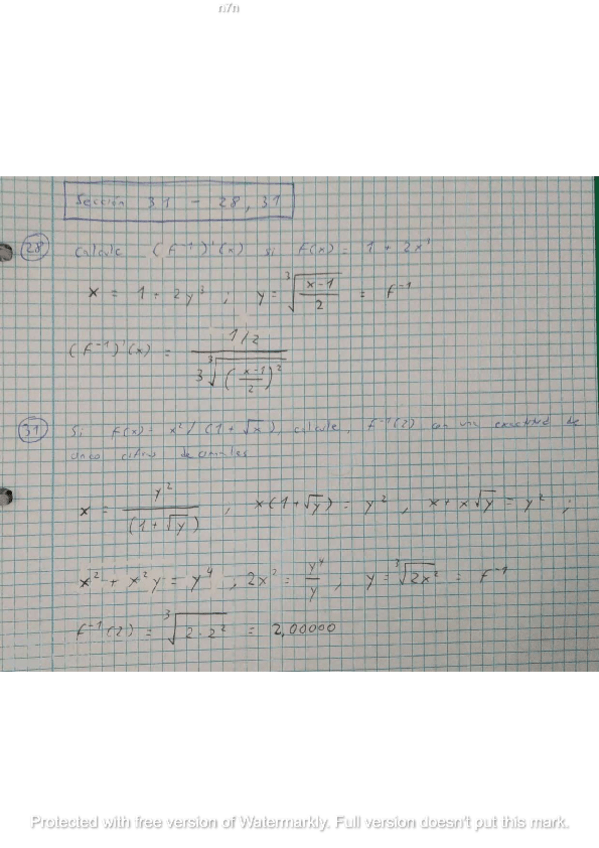 n7n
Sección 3.1 - 28, 31
28 Calcule (f⁻¹)'(x) si f(x) = 1 + 2x³
x = 1 + 2y³ ; y = ∛((x-1)/2) = f⁻¹
(f⁻¹)'(x) = (1/2) / (3 ∛(((x-1)/2)²))
31 Si f(x) = x² / (1 + √x), calcule, f⁻¹(2) con una exactitud de
cinco cifras decimales
x = y² / (1 + √y) , x(1 + √y) = y² , x + x√y = y² ;
x² + x²y = y⁴ , 2x² = y⁴/y , y = ∛(2x²) = f⁻¹
f⁻¹(2) = ∛(2·2²) = 2,00000
Protected with free version of Watermarkly. Full version doesn't put this mark.